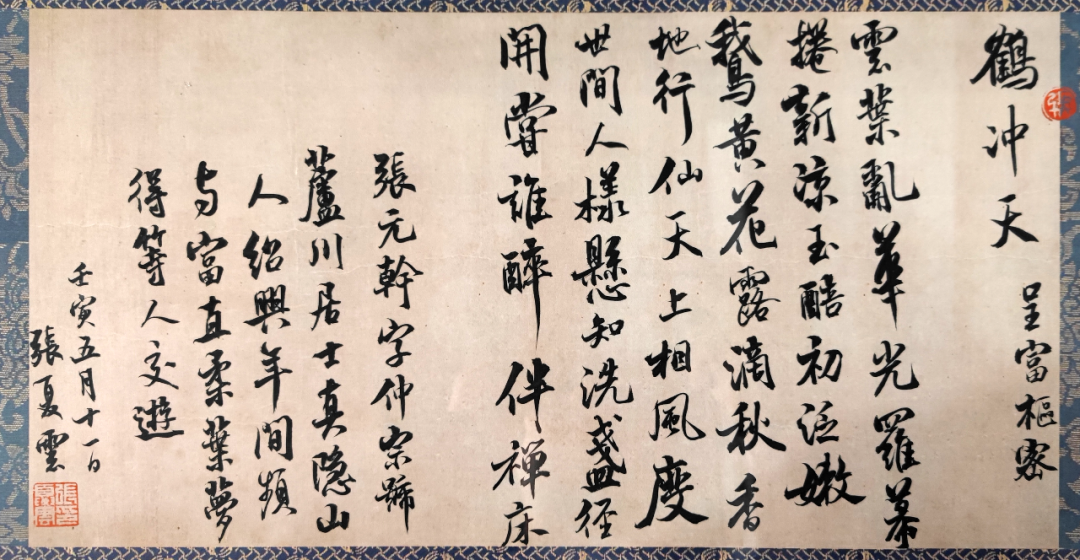 鶴冲天
呈富樞密
雲葉亂華光羅幕
捲新涼玉醅初泛嫩
鵝黄花露滴秋香
地行仙天上相風度
世間人樣懸知洗盞径
開嘗誰醉伴禪床
張元幹字仲宗號
蘆川居士真隐山
人紹興年間頻
与富直柔葉夢
得等人交遊
壬寅五月十一日
張夏雲